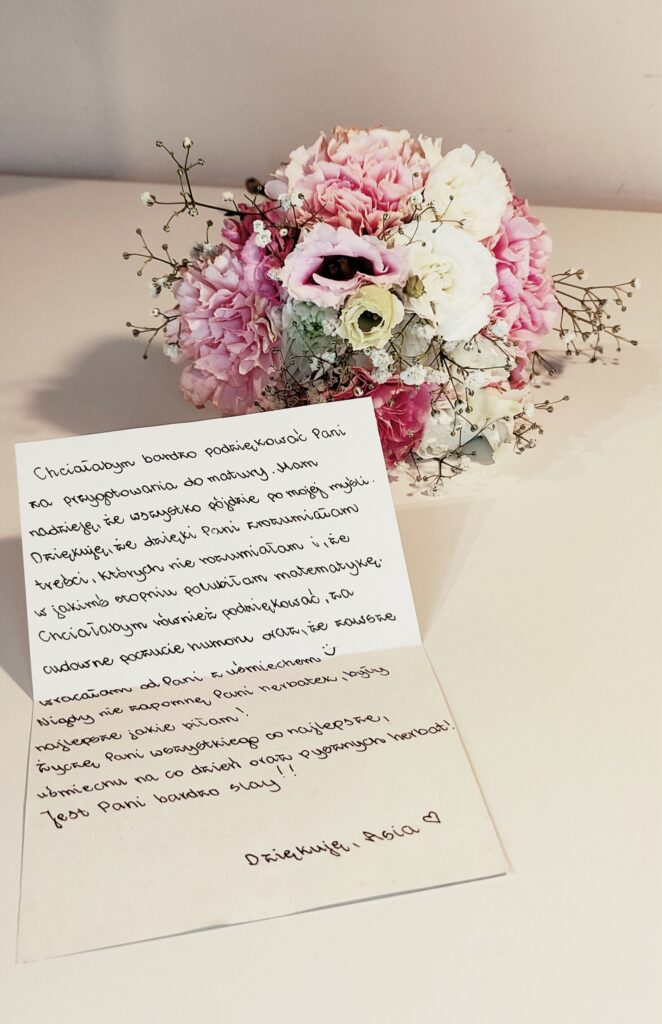 Chciałabym bardzo podziękować Pani
za przygotowania do matury. Mam
nadzieję, że wszystko pójdzie po mojej myśli.
Dziękuję, że dzięki Pani zrozumiałam
treści, których nie rozumiałam i, że
w jakimś stopniu polubiłam matematykę.
Chciałabym również podziękować, za
cudowne poczucie humoru oraz, że zawsze
wracałam od Pani z uśmiechem
Nigdy nie zapomnę Pani herbatek, były
najlepsze jakie piłam!
Życzę Pani wszystkiego co najlepsze,
uśmiechu na co dzień oraz pysznych herbat!
Jest Pani bardzo slay!!
Dziękuję, Asia ♡